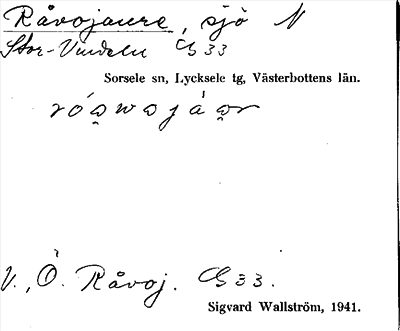 Råvojaure, sjö N
Stor-Vindeln G 33
Sorsele sn, Lycksele tg, Västerbottens län.
V., Ö. Råvoj. G 33.
Sigvard Wallström, 1941.